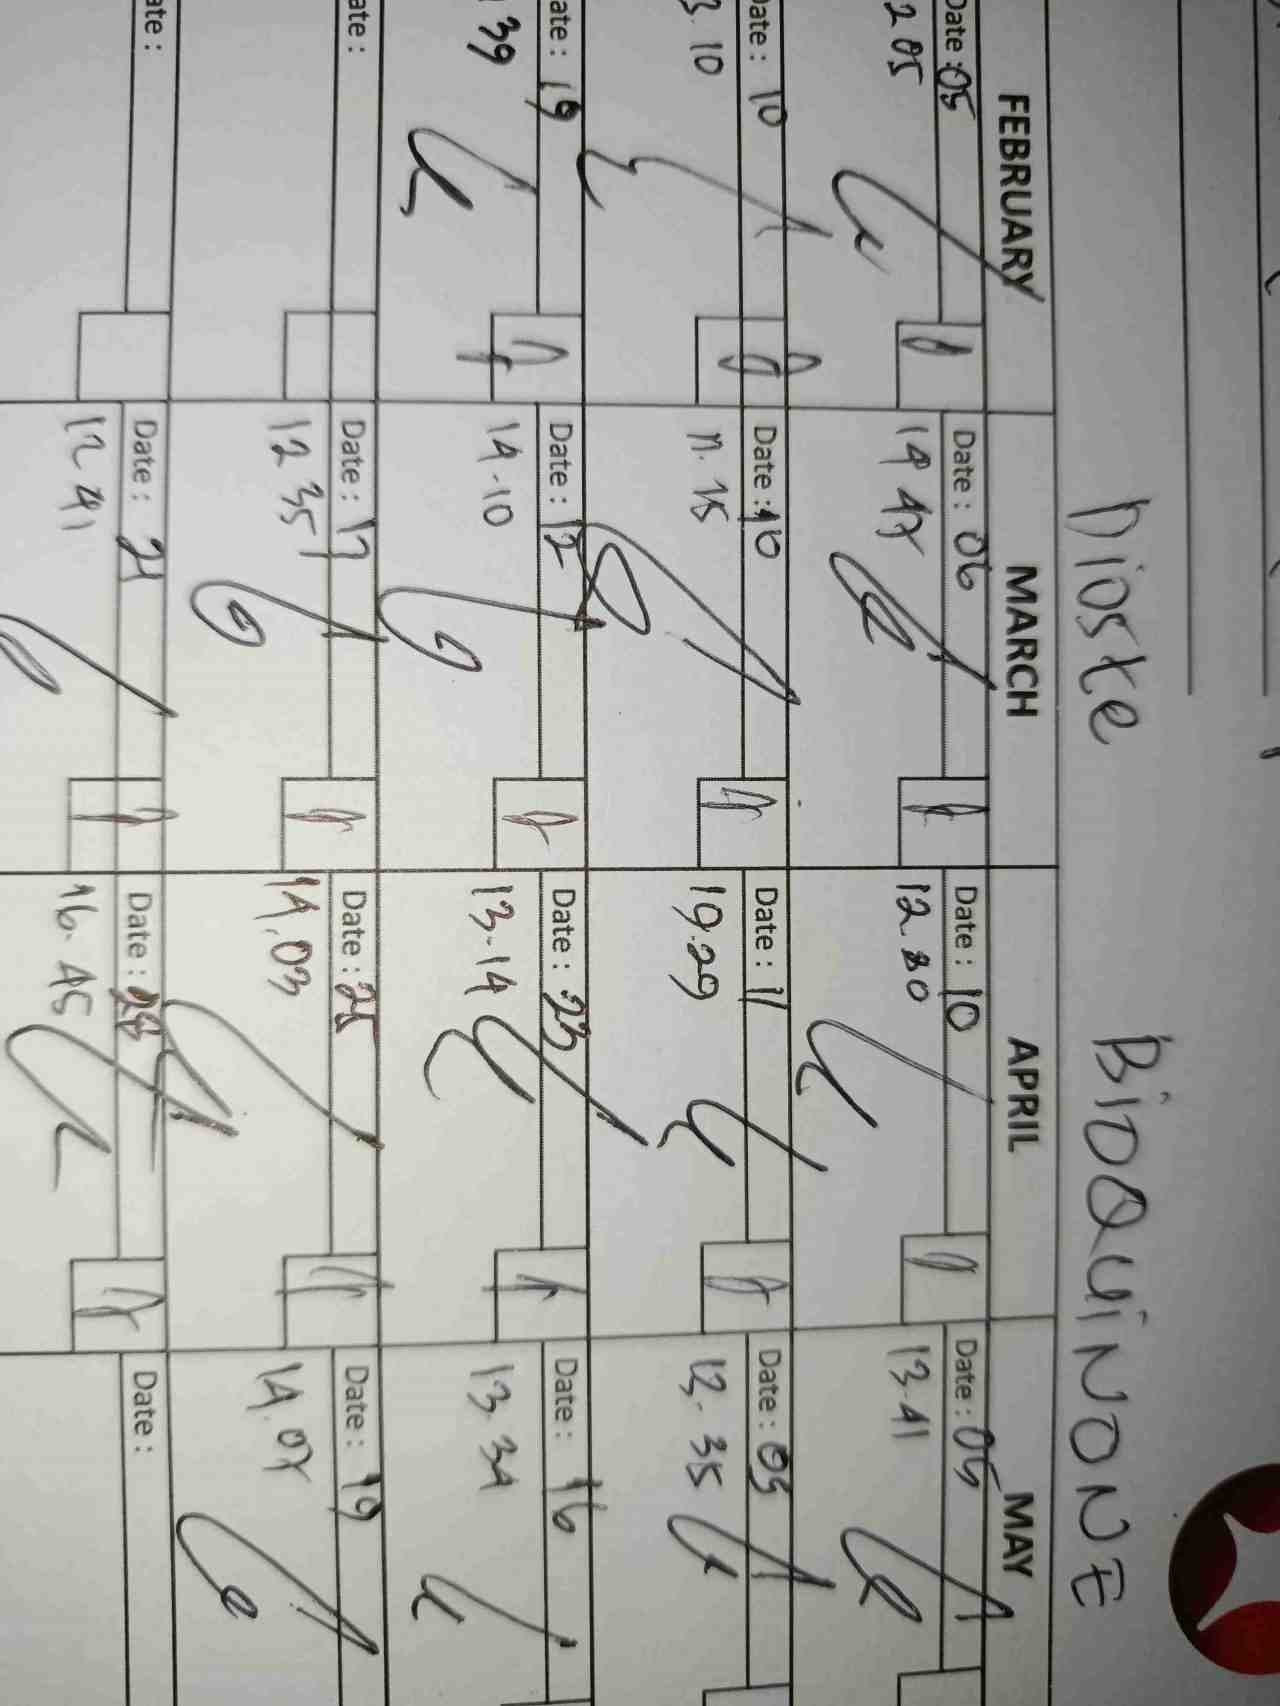 Dioske BIOQUINONE
FEBRUARY MARCH APRIL MAY
Date : 05 Date : 06 Date : 10 Date : 05
2 05 14 47 12.30 13.41
Date : 10 Date : 10 Date : 11 Date : 03
3.10 11.15 19.29 13.35
Date : 19 Date : 12 Date : 23 Date : 16
39 14.10 13-14 13.34
ate : Date : 17 Date : 25 Date : 19
12 35 14.03 14.07
ate : Date : 21 Date : 28 Date :
12 41 16.45